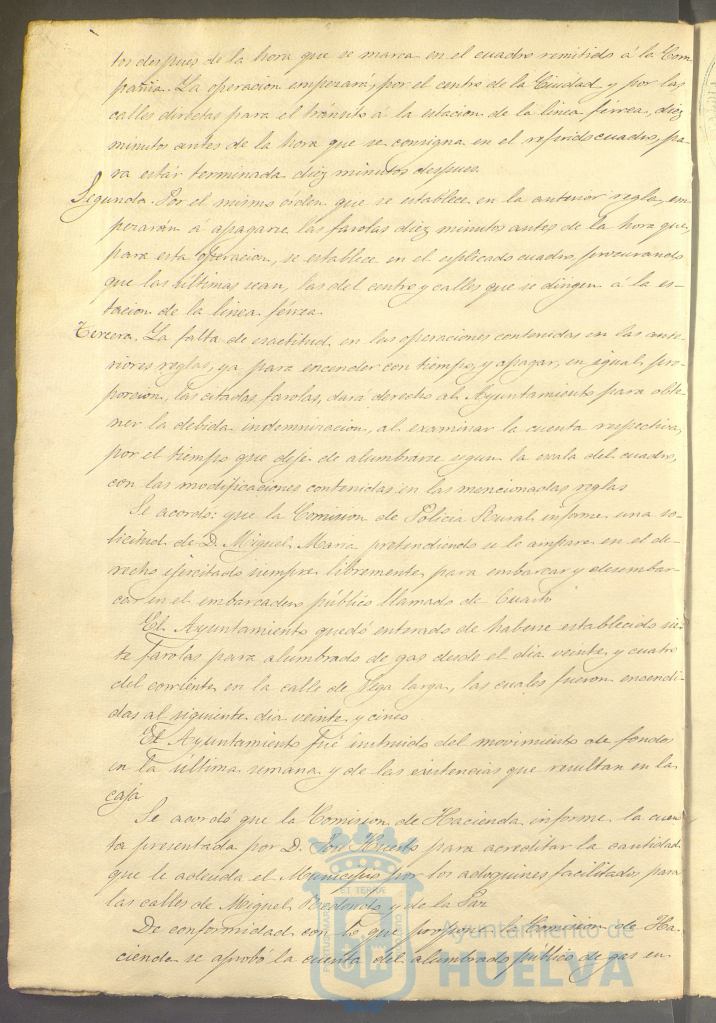 tos despues de la hora que se marca en el cuadro remitido á la Com
pañia. La operacion empezará, por el centro de la Ciudad y por las
calles directas para el tránsito á la estacion de la línea férrea, diez
minutos antes de la hora que se consigna en el referido cuadro, pa-
ra estár terminada diez minutos despues.
Segunda. Por el mismo órden que se establece en la anterior regla, em
pezaran a apagarse las farolas diez minutos antes de la hora que,
para esta operacion, se establece en el esplicado cuadro, procurando
que las últimas sean, las del centro y calles que se dirigen á la es-
tacion de la línea férrea.
Tercera. La falta de esactitud en las operaciones contenidas en las ante-
riores reglas, ya para encender con tiempo, y apagar, en igual pro-
porcion, las citadas farolas, dará derecho al Ayuntamiento para obte-
ner la debida indemnizacion, al examinar la cuenta respectiva,
por el tiempo que deje de alumbrarse segun la escala del cuadro,
con las modificaciones contenidas en las mencionadas reglas
Se acordó: que la Comision de Policia Rural informe una so-
licitud de D. Miguel Maria pretendiendo se le ampare en el de-
recho ejercitado siempre libremente para embarcar y desembar-
car en el embarcadero público llamado de
El Ayuntamiento quedó enterado de haberse establecido sie-
te farolas para alumbrado de gas desde el dia veinte y cuatro
del corriente en la calle de Vega larga, las cuales fueron encendi-
das al siguiente dia veinte y cinco
El Ayuntamiento fué instruido del movimiento de fondos
en la última semana y de las existencias que resultan en la
caja
Se acordó que la Comision de Hacienda informe la cuen-
ta presentada por D. para acreditar la cantidad
que le adeuda el Municipio por los adoquines facilitados para
las calles de Miguel Redondo y de la Paz
De conformidad con lo que propone la Comision de Ha-
cienda se aprobó la cuenta del alumbrado público de gas en
Ayuntamiento de
HUELVA